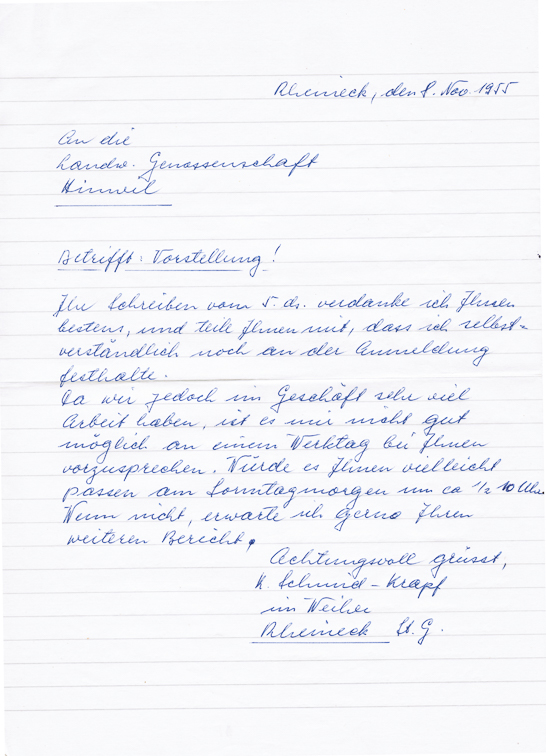 Rheineck, den 8. Nov. 1955
An die
Landw. Genossenschaft
Hinwil
Betrifft: Vorstellung!
Ihr Schreiben vom 5. ds. verdanke ich Ihnen
bestens, und teile Ihnen mit, dass ich selbst-
verständlich noch an der Anmeldung
festhalte.
Da wir jedoch im Geschäft sehr viel
Arbeit haben, ist es mir nicht gut
möglich an einem Werktag bei Ihnen
vorzusprechen. Würde es Ihnen vielleicht
passen am Sonntagmorgen um ca 1/2 10 Uhr.
Wenn nicht, erwarte ich gerne Ihren
weiteren Bericht.
Achtungsvoll grüsst,
K. Schmid-Krapf
im Weiher
Rheineck St. G.